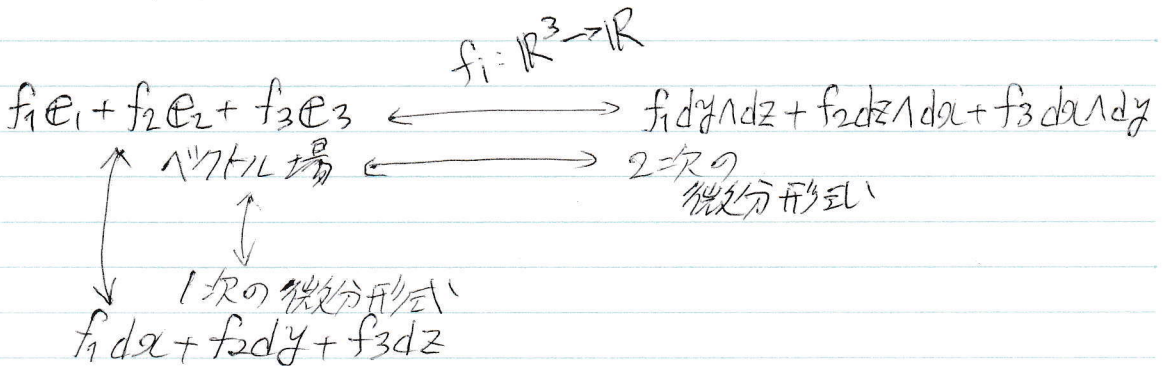 fi: ℝ³→ℝ
f₁e₁ + f₂e₂ + f₃e₃ ⟷ f₁dy∧dz + f₂dz∧dx + f₃dx∧dy
ベクトル場 ⟷ 2次の
微分形式
1次の微分形式
f₁dx + f₂dy + f₃dz